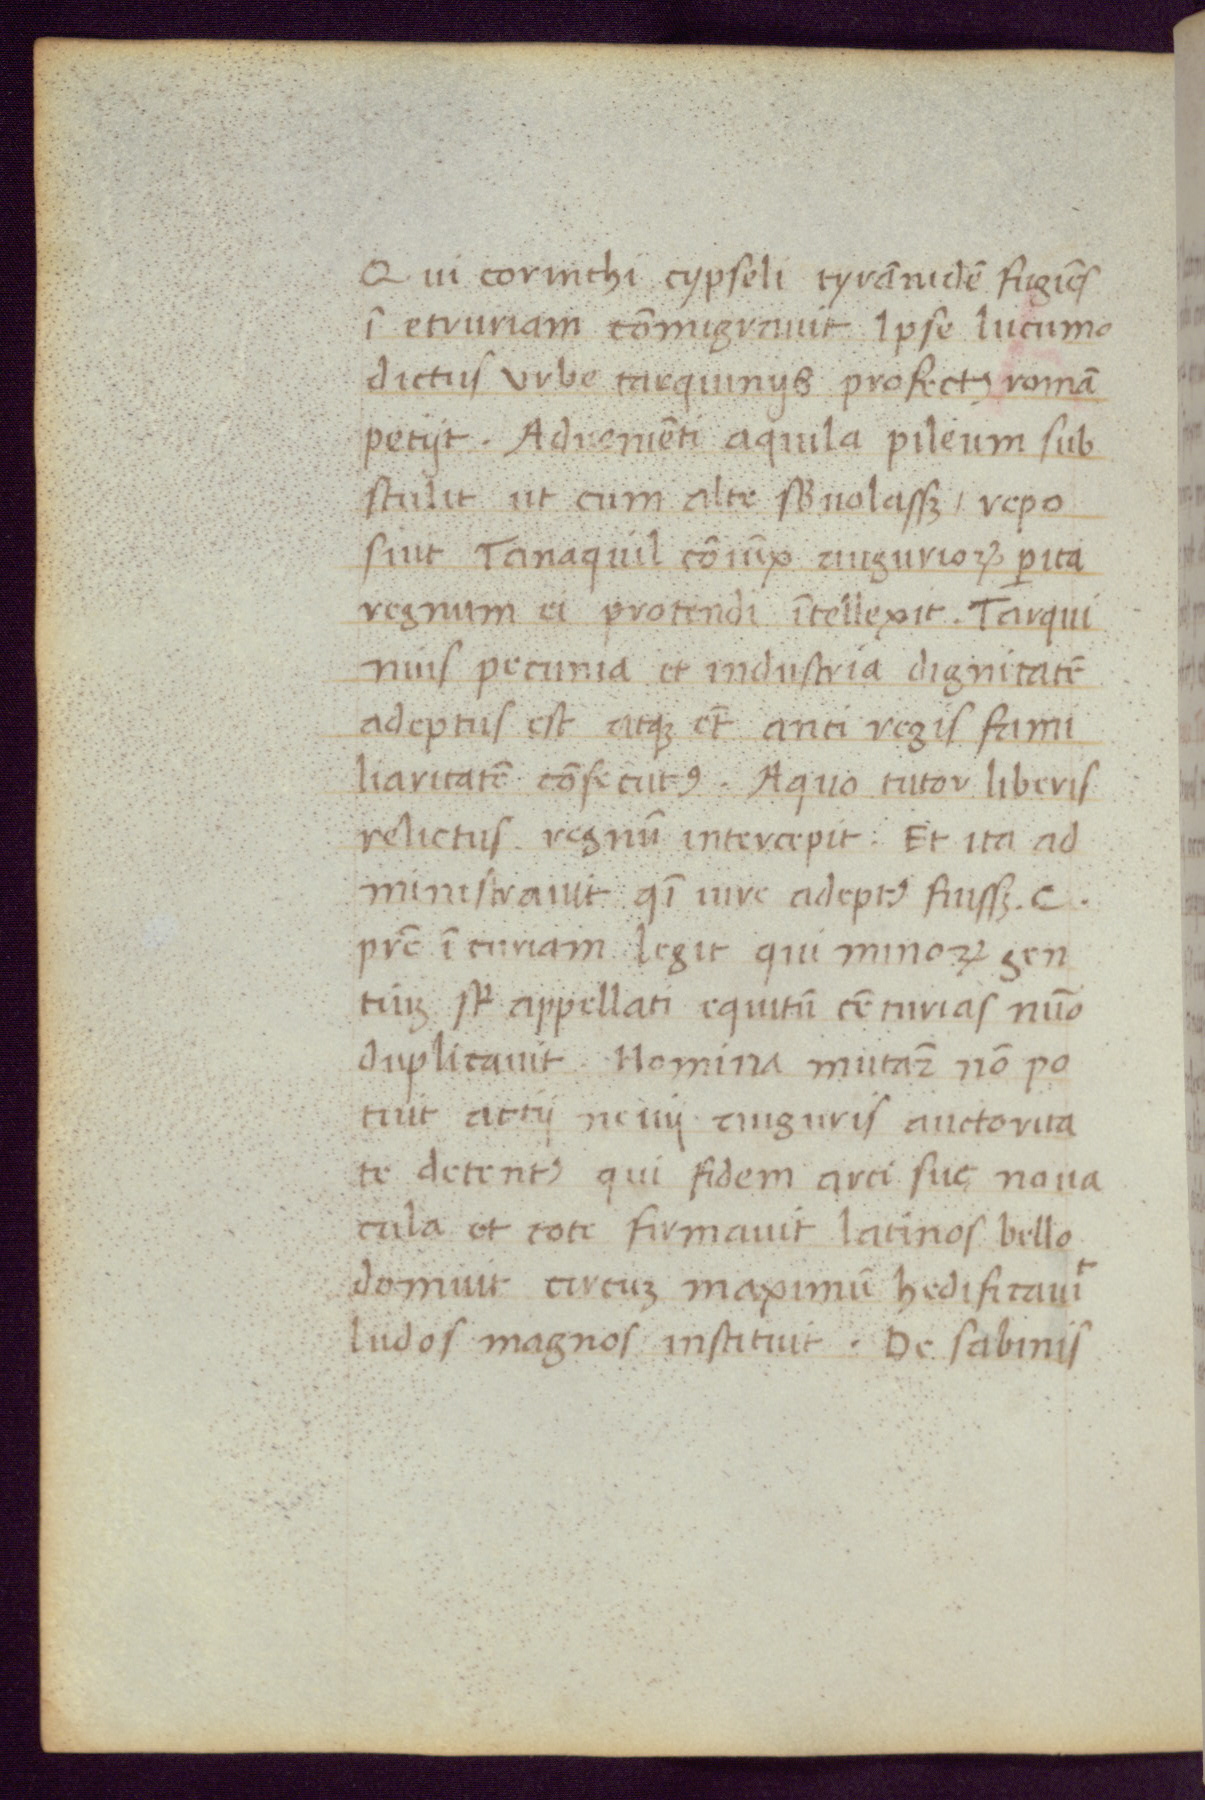 Qui corinthi cypseli tyrānidē fugiēs
ī etruriam cōmigrauit Ipse lucumo
dictus vrbe tarquinijs profectꝰ romā
petijt. Aduenienti aquila pileum sub
stulit ut cum alte sb̄uolassꝫ / repo
suit Tanaquil cōiūx augurioꝝ ꝑita
regnum ei protendi ītellexit. Tarqui
nius pecunia et industria dignitatē
adeptus est atqꝫ et̄ anci regis fami
liaritatē cōsecutꝰ. Aquo tutor liberis
relictus regnū intercepit. Et ita ad
ministrauit qī iure adeptꝰ fuissꝫ. C.
pr̄e ī curiam legit qui minoꝝ gen
tiuꝫ st̄ appellati equitū cēturias nūo
duplicauit Nomina mutar̄ nō po
tuit actij neuij auguris auctorita
te detentꝰ qui fidem arti suę noua
cula et cote firmauit latinos bello
domuit circuꝫ maximū hedificauit
ludos magnos instituit. De sabinis